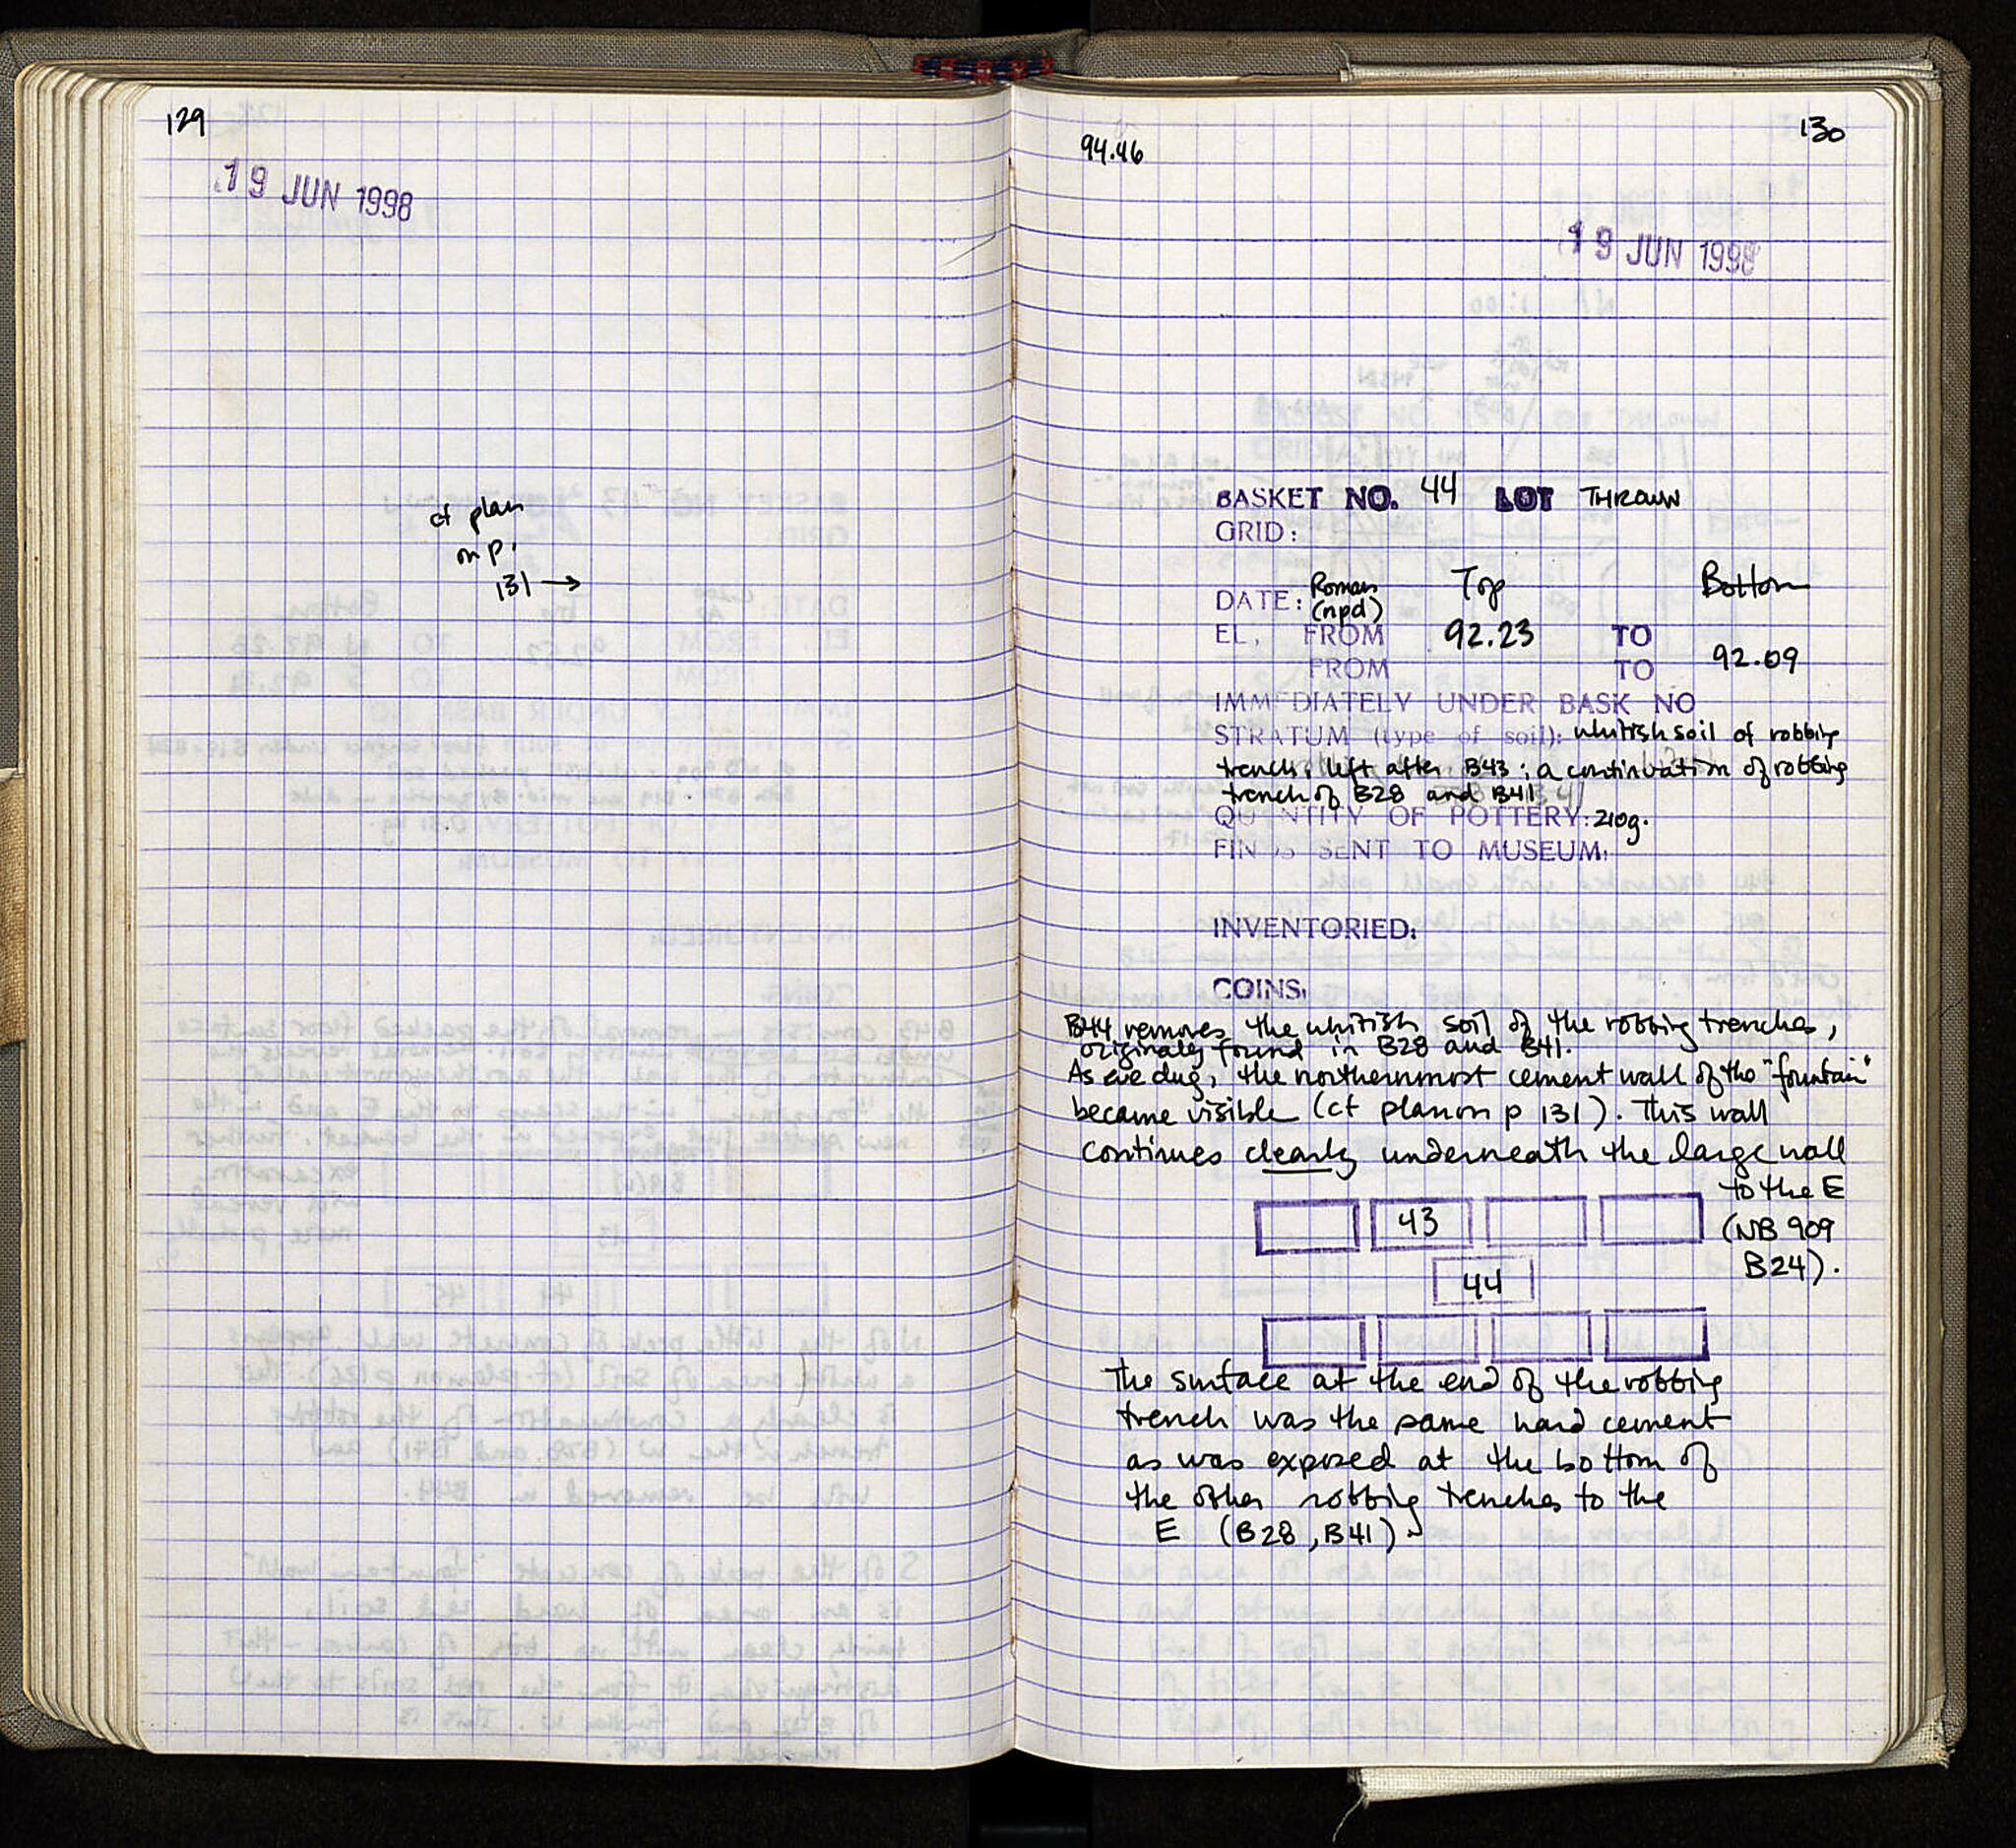 129
19 JUN 1998
cf plan
on p.
131 →
130
94.46
19 JUN 1998
BASKET NO. 44 LOT THROWN
GRID:
DATE: Roman (npd) Top Bottom
EL, FROM 92.23 TO
FROM TO 92.09
IMMEDIATELY UNDER BASK NO
STRATUM (type of soil): whitish soil of robbing
trench, left after B43; a continuation of robbing
trench of B28 and B41
QUANTITY OF POTTERY: 210g.
FINDS SENT TO MUSEUM:
INVENTORIED:
COINS:
B44 removes the whitish soil of the robbing trenches,
originally found in B28 and B41.
As we dug, the northernmost cement wall of the "fountain"
became visible (cf plan on p 131). This wall
continues clearly underneath the large wall
to the E
(NB 909
B24).
43
44
The surface at the end of the robbing
trench was the same hard cement
as was exposed at the bottom of
the other robbing trenches to the
E (B28, B41).